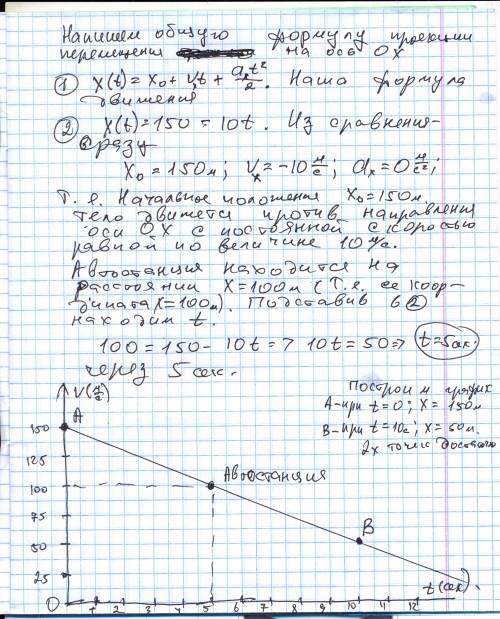 Напишем общую формулу проекции
перемещения на ось OX
① X(t) = X₀ + Vₓt + aₓt²/2. Наша формула
движения
② X(t) = 150 - 10t. Из сравнения-
сразу
X₀ = 150м; Vₓ = -10 м/с; aₓ = 0 м/с²;
Т.е. Начальное положение X₀ = 150м
тело движется против направления
оси OX с постоянной скоростью
равной по величине 10 м/с.
Автостанция находится на
расстоянии X = 100м (т.е. ее коор-
дината X = 100м). Подставив в ②
находим t.
100 = 150 - 10t => 10t = 50 => t = 5сек.
через 5 сек.
Построим график
A-при t = 0; X = 150м
B-при t = 10с; X = 50м.
2х точек достаточно
V(м/с)
A
150
125
Автостанция
100
75
B
50
25
t(сек).
0 1 2 3 4 5 6 7 8 9 10 11 12